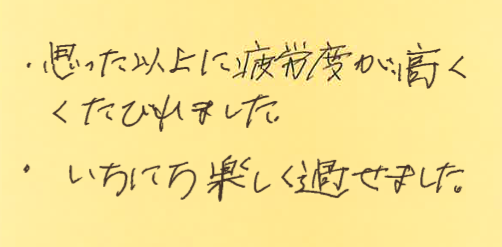 ・思った以上に疲労度が高く
くたびれました。
・いちにち楽しく過せました。